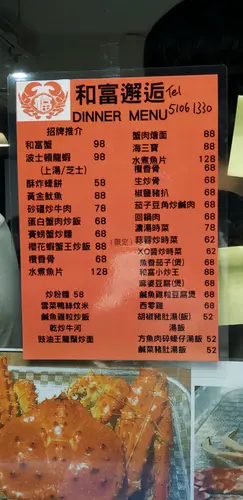 福
和富邂逅
Tel
51061330
DINNER MENU
招牌推介
和富蟹 98
波士頓龍蝦 98
(上湯/芝士)
酥炸蠔餅 58
黃金魷魚 88
砂爐炒牛肉 78
蛋白蟹肉炒飯 68
賽螃蟹炒麵 68
櫻花蝦蟹王炒飯 88
欖香骨 68
水煮魚片 128
炒粉麵 58
雪菜鴨絲炆米
鹹魚雞粒炒飯
乾炒牛河
豉油王龍鬚炒面
蟹肉燴面 88
海三寶 88
水煮魚片 128
欖香骨 68
生炒骨 68
椒鹽豬扒 68
茄子豆角炒鹹肉 68
回鍋肉 68
濃湯時菜 78
蒜蓉炒時菜 62
XO醬炒時菜 62
魚香茄子(煲) 68
和富小炒王 88
麻婆豆腐(煲) 68
鹹魚雞粒豆腐煲 68
西零雞 68
胡椒豬肚湯(飯) 52
湯飯
方魚肉碎蠔仔湯飯 52
鹹菜豬肚湯飯 52